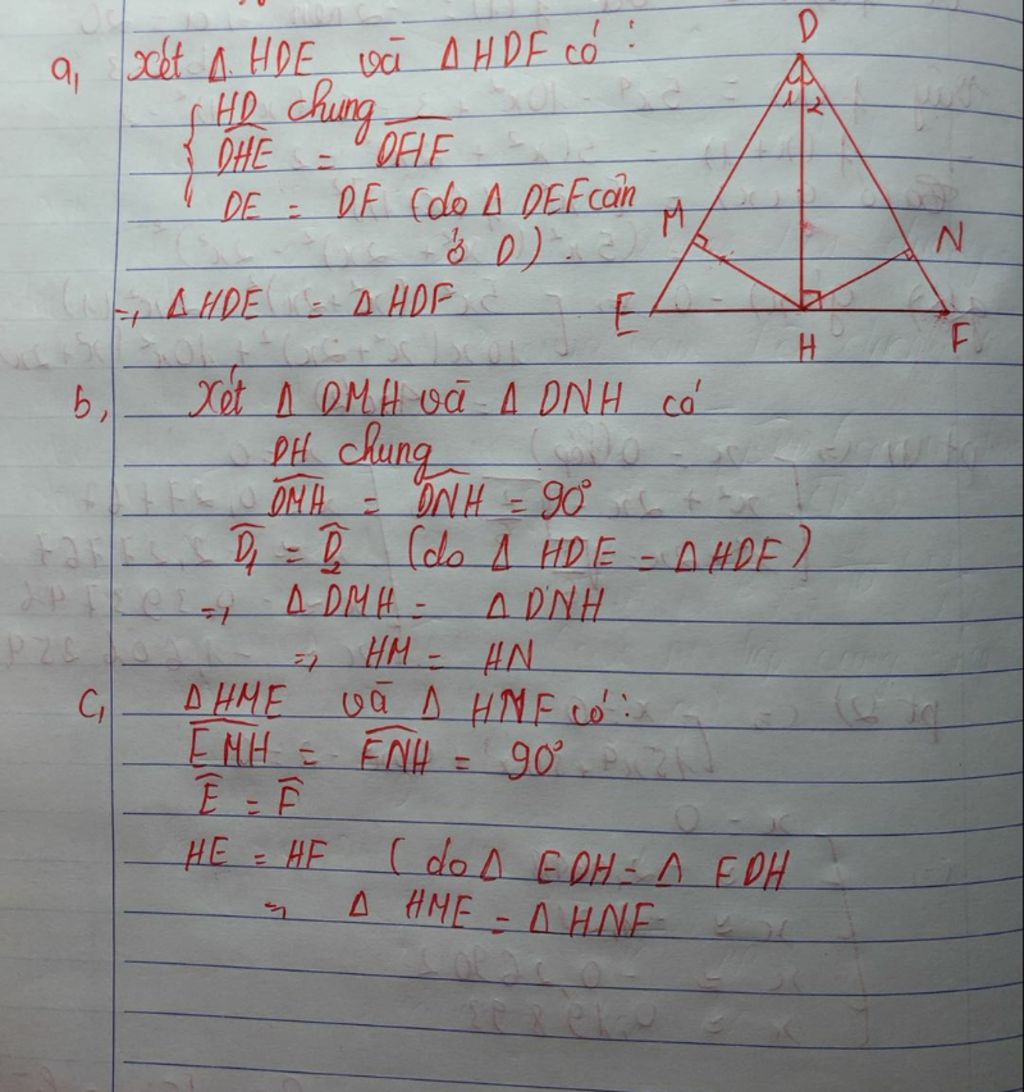 a, Xét Δ HDE và Δ HDF có :
HD chung
DHE = DHF
DE = DF (do Δ DEF cân
ở D).
=> Δ HDE = Δ HDF
D
1 2
M
N
E
H
F
b, Xét Δ DMH và Δ DNH có
DH chung
DMH = DNH = 90°
D1 = D2 (do Δ HDE = Δ HDF)
=> Δ DMH = Δ DNH
=> HM = HN
c, Δ HME và Δ HNF có :
EMH = FNH = 90°
E = F
HE = HF ( do Δ EDH = Δ FDH
=> Δ HME = Δ HNF